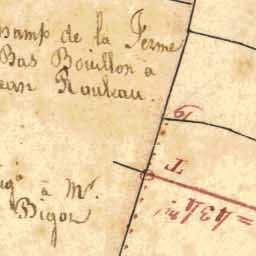 hamp de la Ferme
Bas Bouillon à
ean Rouleau.
à Mr.
Bigot
T
= 434 m